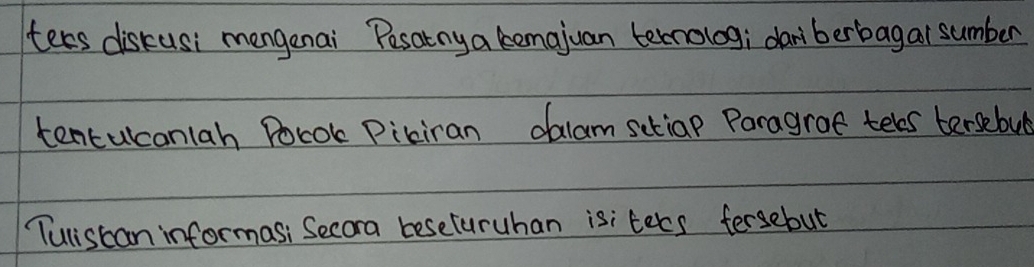 teks diskusi mengenai Pesatnya kemajuan teknologi dari berbagai sumber
tentukanlah Pokok Pikiran dalam setiap Paragraf teks tersebut
Tuliskan informasi Secara keseluruhan isi teks tersebut